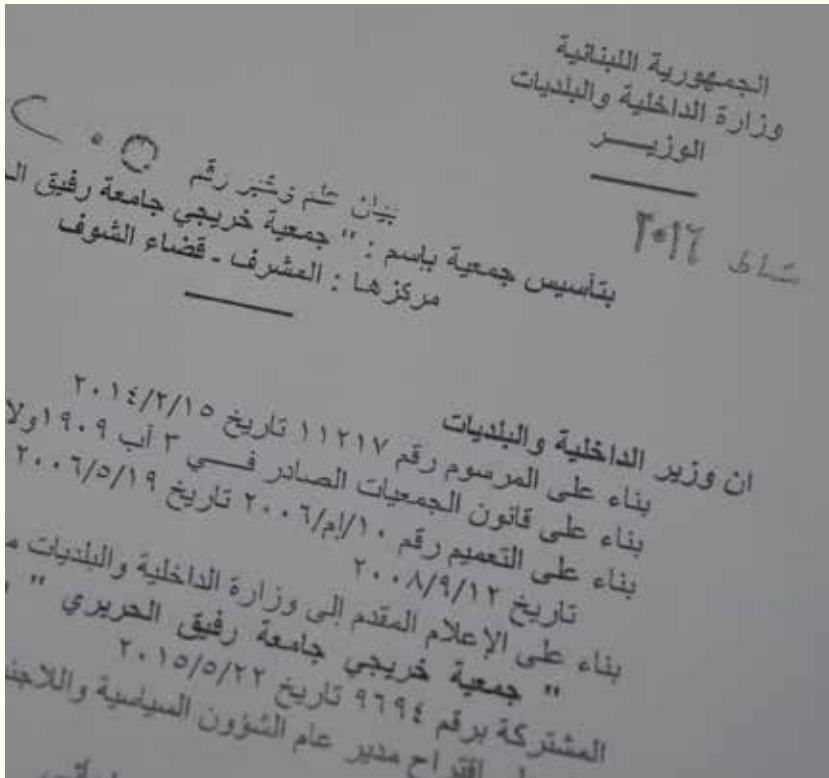 الجمهورية اللبنانية
وزارة الداخلية والبلديات
الوزيــــر
٢٠١٦
بيان علم وخبر رقم
بتأسيس جمعية بإسم : " جمعية خريجي جامعة رفيق
مركزها : المشرف - قضاء الشوف
ان وزير الداخلية والبلديات
بناء على المرسوم رقم ١١٢١٧ تاريخ ٢٠١٤/٢/١٥
بناء على قانون الجمعيات الصادر فــــي ٣ آب ١٩٠٩
بناء على التعميم رقم ١٠/إم/٢٠٠٦ تاريخ ٢٠٠٦/٥/١٩
تاريخ ٢٠٠٨/٩/١٢
بناء على الإعلام المقدم إلى وزارة الداخلية والبلديات
" جمعية خريجي جامعة رفيق الحريري "
المشتركة برقم ٩٦٩٤ تاريخ ٢٠١٥/٥/٢٢
اقتراح مدير عام الشؤون السياسية